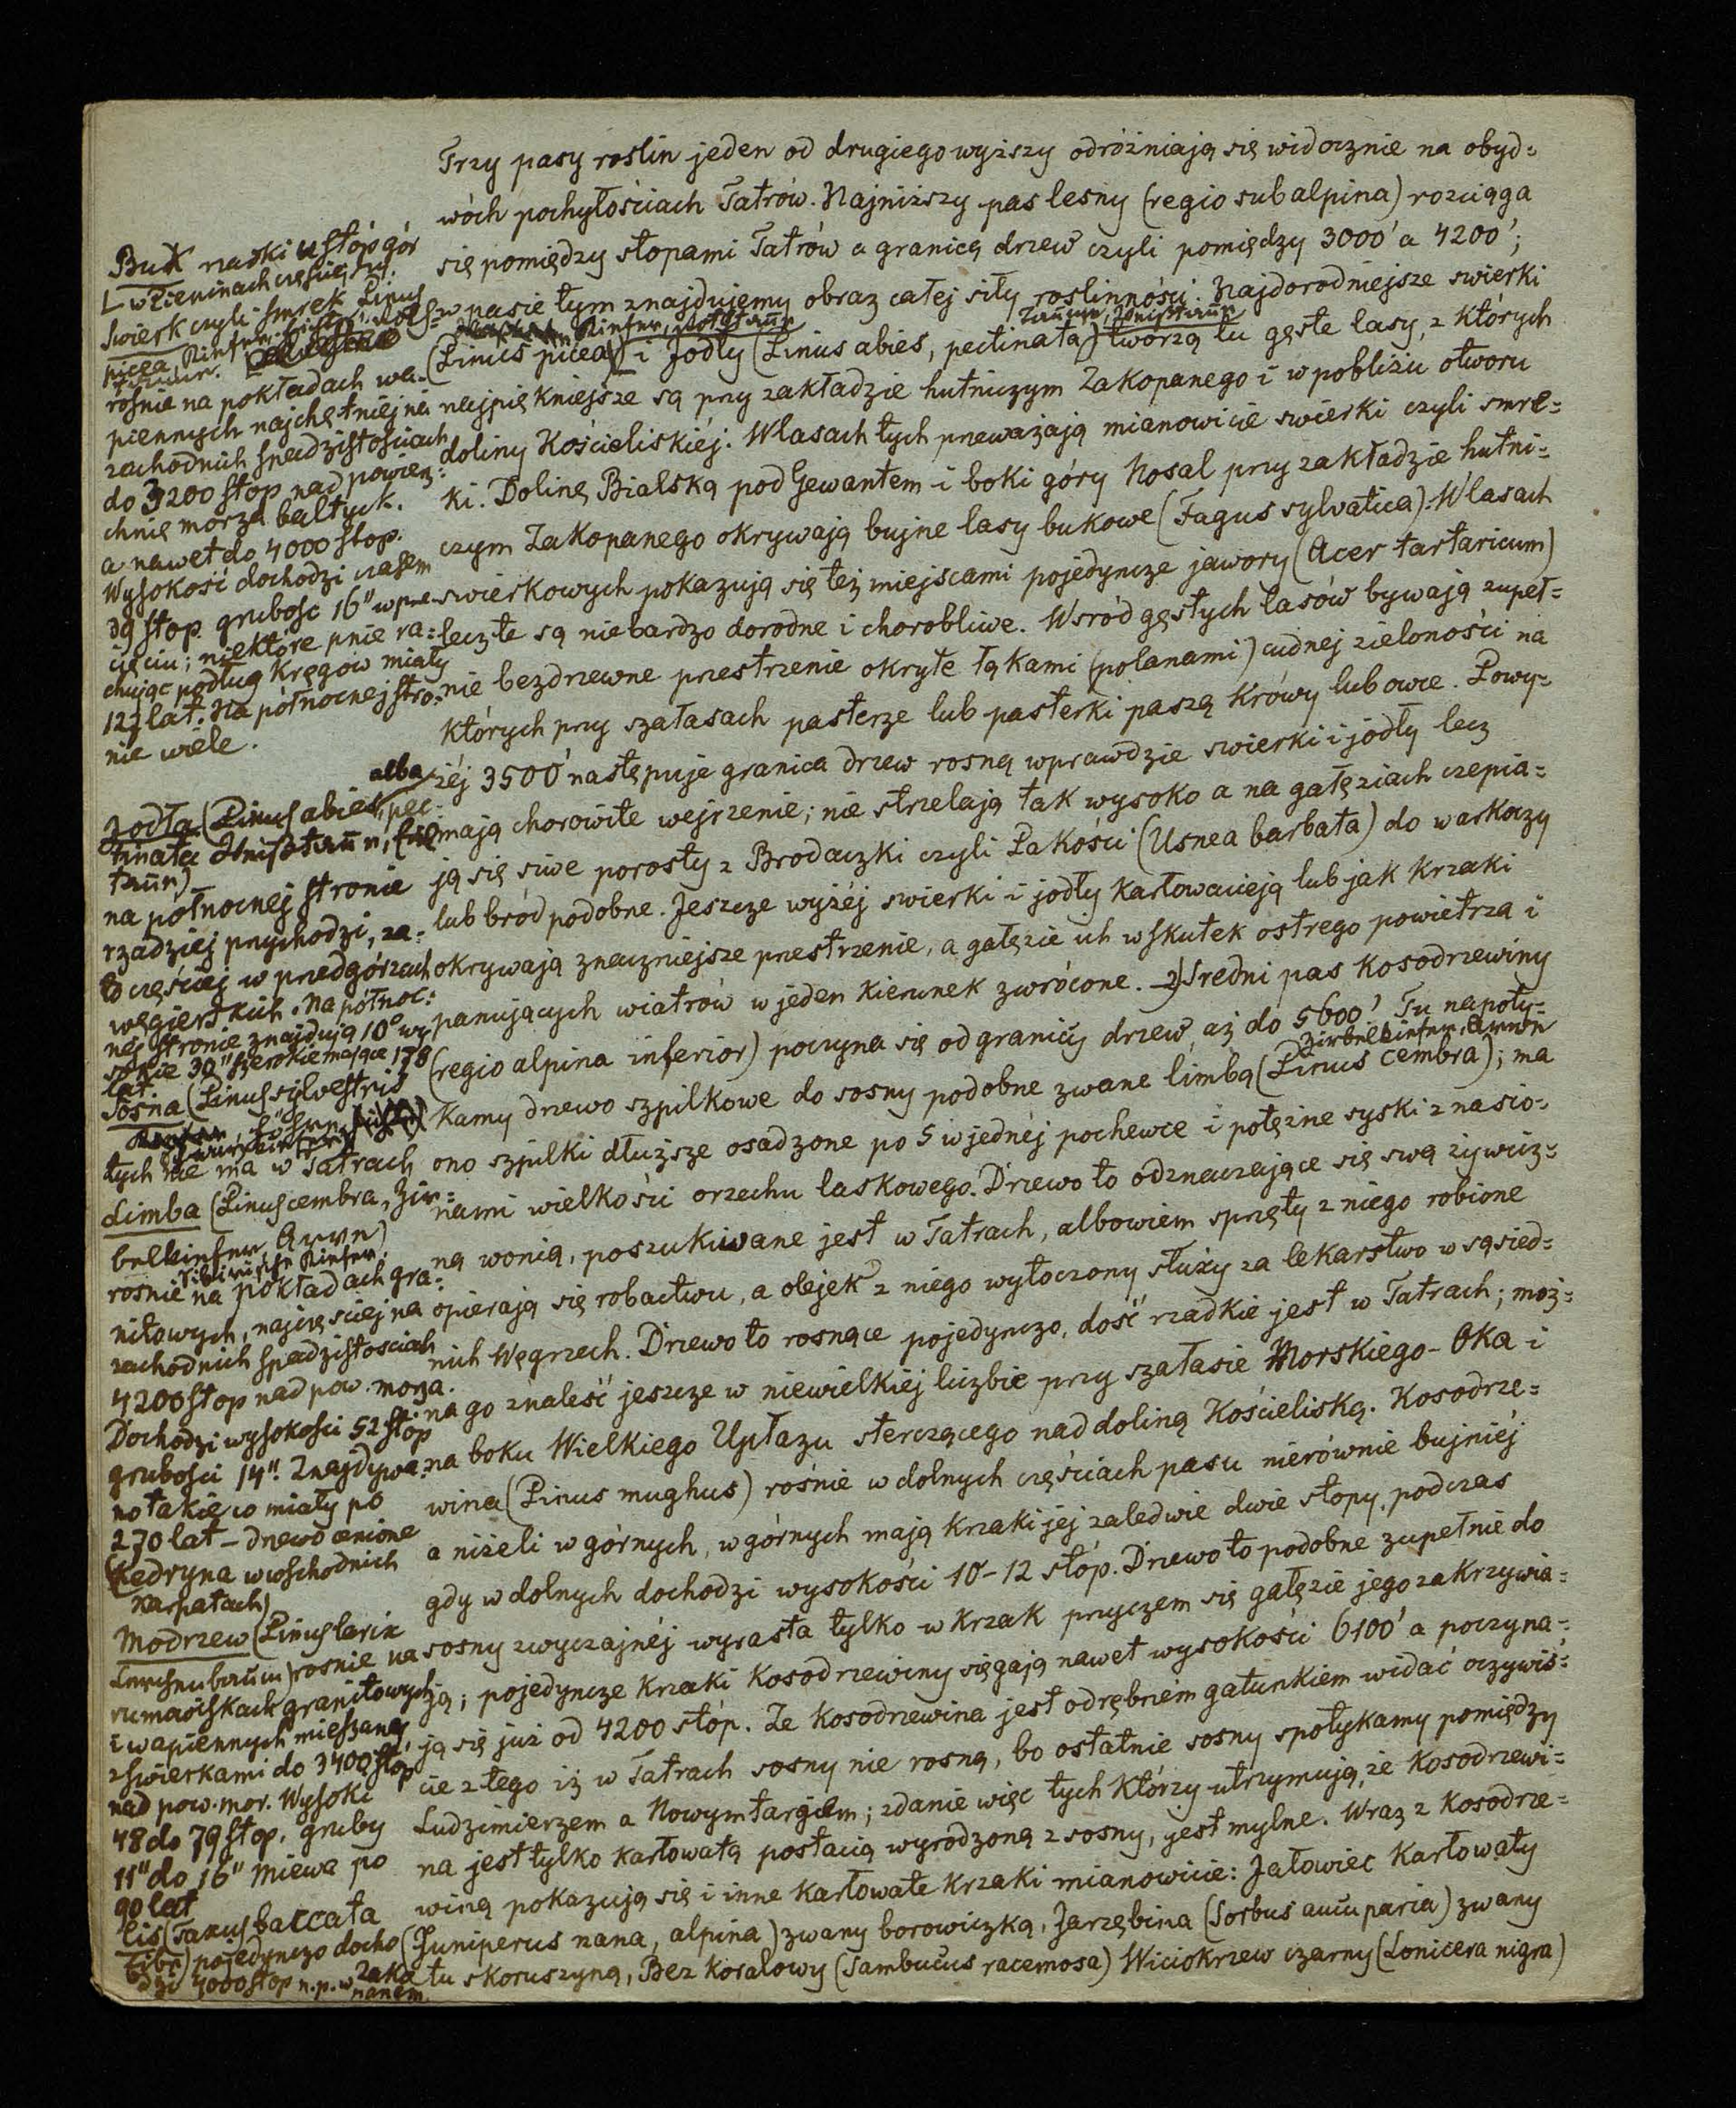 Trzy pasy roslin jeden od drugiego wyższy odróżniają się widocznie na obyd=
wóch pochyłościach Tatrów. Najniższy pas lesny (regio subalpina) rozciąga
się pomiędzy stopami Tatrów a granicą drzew czyli pomiędzy 3000' a 4200';
w pasie tym znajdujemy obraz całej siły roslinności. Najdorodniejsze swierki
(Pinus picea) i Jodły (Pinus abies, pectinata) tworzą tu gęste lasy, z których
najpiękniejsze są przy zakładzie hutniczym Zakopanego i w pobliżu otworu
doliny Kościeliskiéj. W lasach tych przeważają mianowicie swierki czyli smre=
ki. Dolinę Bialską pod Gewantem i boki góry Nosal przy zakładzie hutni=
czym Zakopanego okrywają bujne lasy bukowe (Fagus sylvatica). W lasach
swierkowych pokazują się też miejscami pojedyncze jawory (Acer tartaricum)
lecz te są niebardzo dorodne i chorobliwe. Wsród gęstych lasów bywają zupeł=
nie bezdrzewne przestrzenie okryte łąkami (polanami) cudnej zieloności na
których przy szałasach pasterze lub pasterki paszą krówy lub owce. Powy=
żéj 3500' następuje granica drzew rosną wprawdzie swierki i jodły lecz
mają chorowite wejrzenie; nie strzelają tak wysoko a na gałęziach czepia=
ją się siwe porosty z Brodaczki czyli Pakości (Usnea barbata) do warkoczy
lub bród podobne. Jeszcze wyżéj swierki i jodły karłowacieją lub jak krzaki
okrywają znaczniejsze przestrzenie, a gałęzie ich wskutek ostrego powietrza i
panujących wiatrów w jeden kierunek zwrócone. 2) Sredni pas kosodrzewiny
(regio alpina inferior) poczyna się od granicy drzew, aż do 5600' Tu napoty=
kamy drzewo szpilkowe do sosny podobne zwane limbą (Pinus cembra); ma
ono szpilki dłuższe osadzone po 5 w jednéj pochewce i potężne syski z nasio=
nami wielkości orzechu laskowego. Drzewo to odznaczające się swą żywicz=
ną wonią, poszukiwane jest w Tatrach, albowiem sprzęty z niego robione
opierają się robactwu, a olejek z niego wytoczony służy za lekarstwo w sąsied=
nich Węgrzech. Drzewo to rosnące pojedynczo, dość rzadkie jest w Tatrach; moż=
na go znaleść jeszcze w niewielkiéj liczbie przy szałasie Morskiego-Oka i
na boku Wielkiego Upłazu sterczącego nad doliną Kościeliską. Kosodrze=
wina (Pinus mughus) rośnie w dolnych częściach pasu nierównie bujniéj
aniżeli w górnych, w górnych mają krzaki jéj zaledwie dwie stopy, podczas
gdy w dolnych dochodzi wysokości 10-12 stóp. Drzewo to podobne zupełnie do
sosny zwyczajnéj wyrasta tylko w krzak przyczem się gałęzie jego zakrzywia=
ją; pojedyncze krzaki kosodrzewiny sięgają nawet wysokości 6100' a poczyna=
ją się już od 4200 stóp. Ze kosodrzewina jest odrębném gatunkiem widać oczywiś=
cie z tego iż w Tatrach sosny nie rosną, bo ostatnie sosny spotykamy pomiędzy
Ludzimierzem a Nowymtargiem; zdanie więc tych którzy utrzymują, że kosodrzewi=
na jest tylko karłowatą postacią wyrodzoną z sosny, jest mylne. Wraz z kosodrze=
winą pokazują się i inne karłowate krzaki mianowicie: Jałowiec karłowaty
(Juniperus nana, alpina) zwany borowiczką, Jarzębina (Sorbus aucuparia) zwany
tu skoruszyną, Bez koralowy (Sambucus racemosa) Wiciokrzew czarny (Lonicera nigra)
Buk naski u stóp gór
Swierk czyli Smrek Pinus
picea
rosnie na pokładach wa=
piennych najchętniej na
zachodnich spadzistościach
do 3200 stop nad powierz=
chnię morza baltyck.
a nawet do 4000 stop.
Wysokość dochodzi czasem
39 stop. grubosc 16" w prze=
cięciu; niektóre pnie ra=
chując podług kręgów miały
123 lat. Na północnej stro=
nie wiele.
Jodła (Pinus abies, alba pec=
tinata
na północnej stronie
rzadziej przychodzi, za=
to częściej w przedgórzach
węgierskich. Na północ=
nej stronie znajdują 10° wy
sokie 30" szerokie mające 178
lat.
Sosna (Pinus silvestris
tych nie ma w Tatrach
Limba (Pinus cembra, Zir=
belkiefer, Arve)
rosnie na pokładach gra=
nitowych, najczęsciej na
zachodnich spadzistosciach
4200 stop nad pow. morza.
Dochodzi wysokości 52 stóp
grubości 14". Znajdywa=
no takie co miały po
270 lat - drzewo cenione
(Kedryna w wschodnich
Karpatach)
Modrzew (Pinus larix
Lerchenbaum) rosnie na
rumowiskach granitowych
i wapiennych mieszany
z swierkami do 3400 stóp
nad pow. mor. Wysoki
48 do 79 stop. gruby
11" do 16" miewa po
90 lat
Cis (Taxus baccata
Eibe) pojedynczo docho
dzi 4000 stop n.p. w Zako
panem.